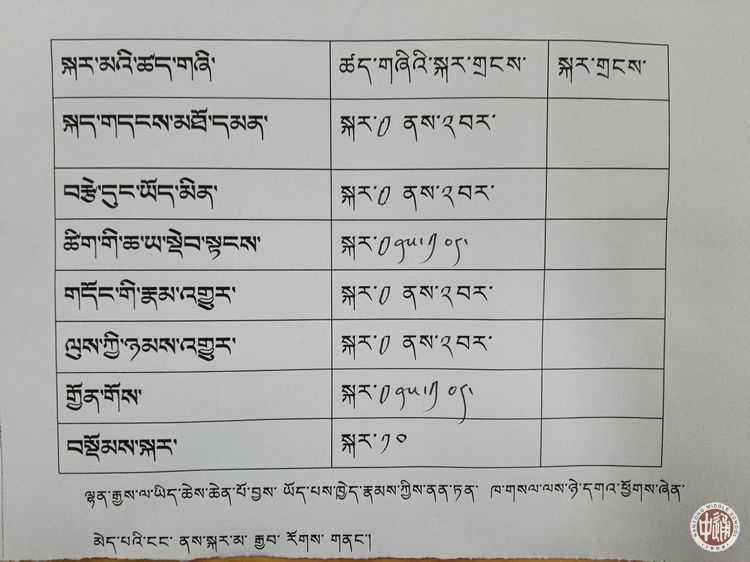 སྐར་མའི་ཚད་གཞི་ ཚད་གཞིའི་སྐར་གྲངས་ སྐར་གྲངས་
སྐད་གདངས་མཐོ་དམན་ སྐར་༠ ནས་༢བར་
བརྩེ་དུང་ཡོད་མིན་ སྐར་༠ ནས་༢བར་
ཚིག་གི་ཆ་ཡ་སྡེབ་སྟངས་ སྐར་༠
གདོང་གི་རྣམ་འགྱུར་ སྐར་༠ ནས་༢བར་
ལུས་ཀྱི་ཉམས་འགྱུར་ སྐར་༠ ནས་༢བར་
གྱོན་གོས་ སྐར་༠
བསྡོམས་སྐར་ སྐར་༡༠
ལྷན་རྒྱས་ལ་ཡིད་ཆེས་ཆེན་པོ་བྱས་ ཡོད་པས་ཁྱེད་རྣམས་ཀྱིས་ནན་ཏན་ ཁ་གསལ་ལས་ཉེ་དགའ་ཕྱོགས་ཞེན་
མེད་པའི་ངང་ ནས་སྐར་མ་ རྒྱབ་ རོགས་ གནང་།
NANTONG MIDDLE SCHOOL